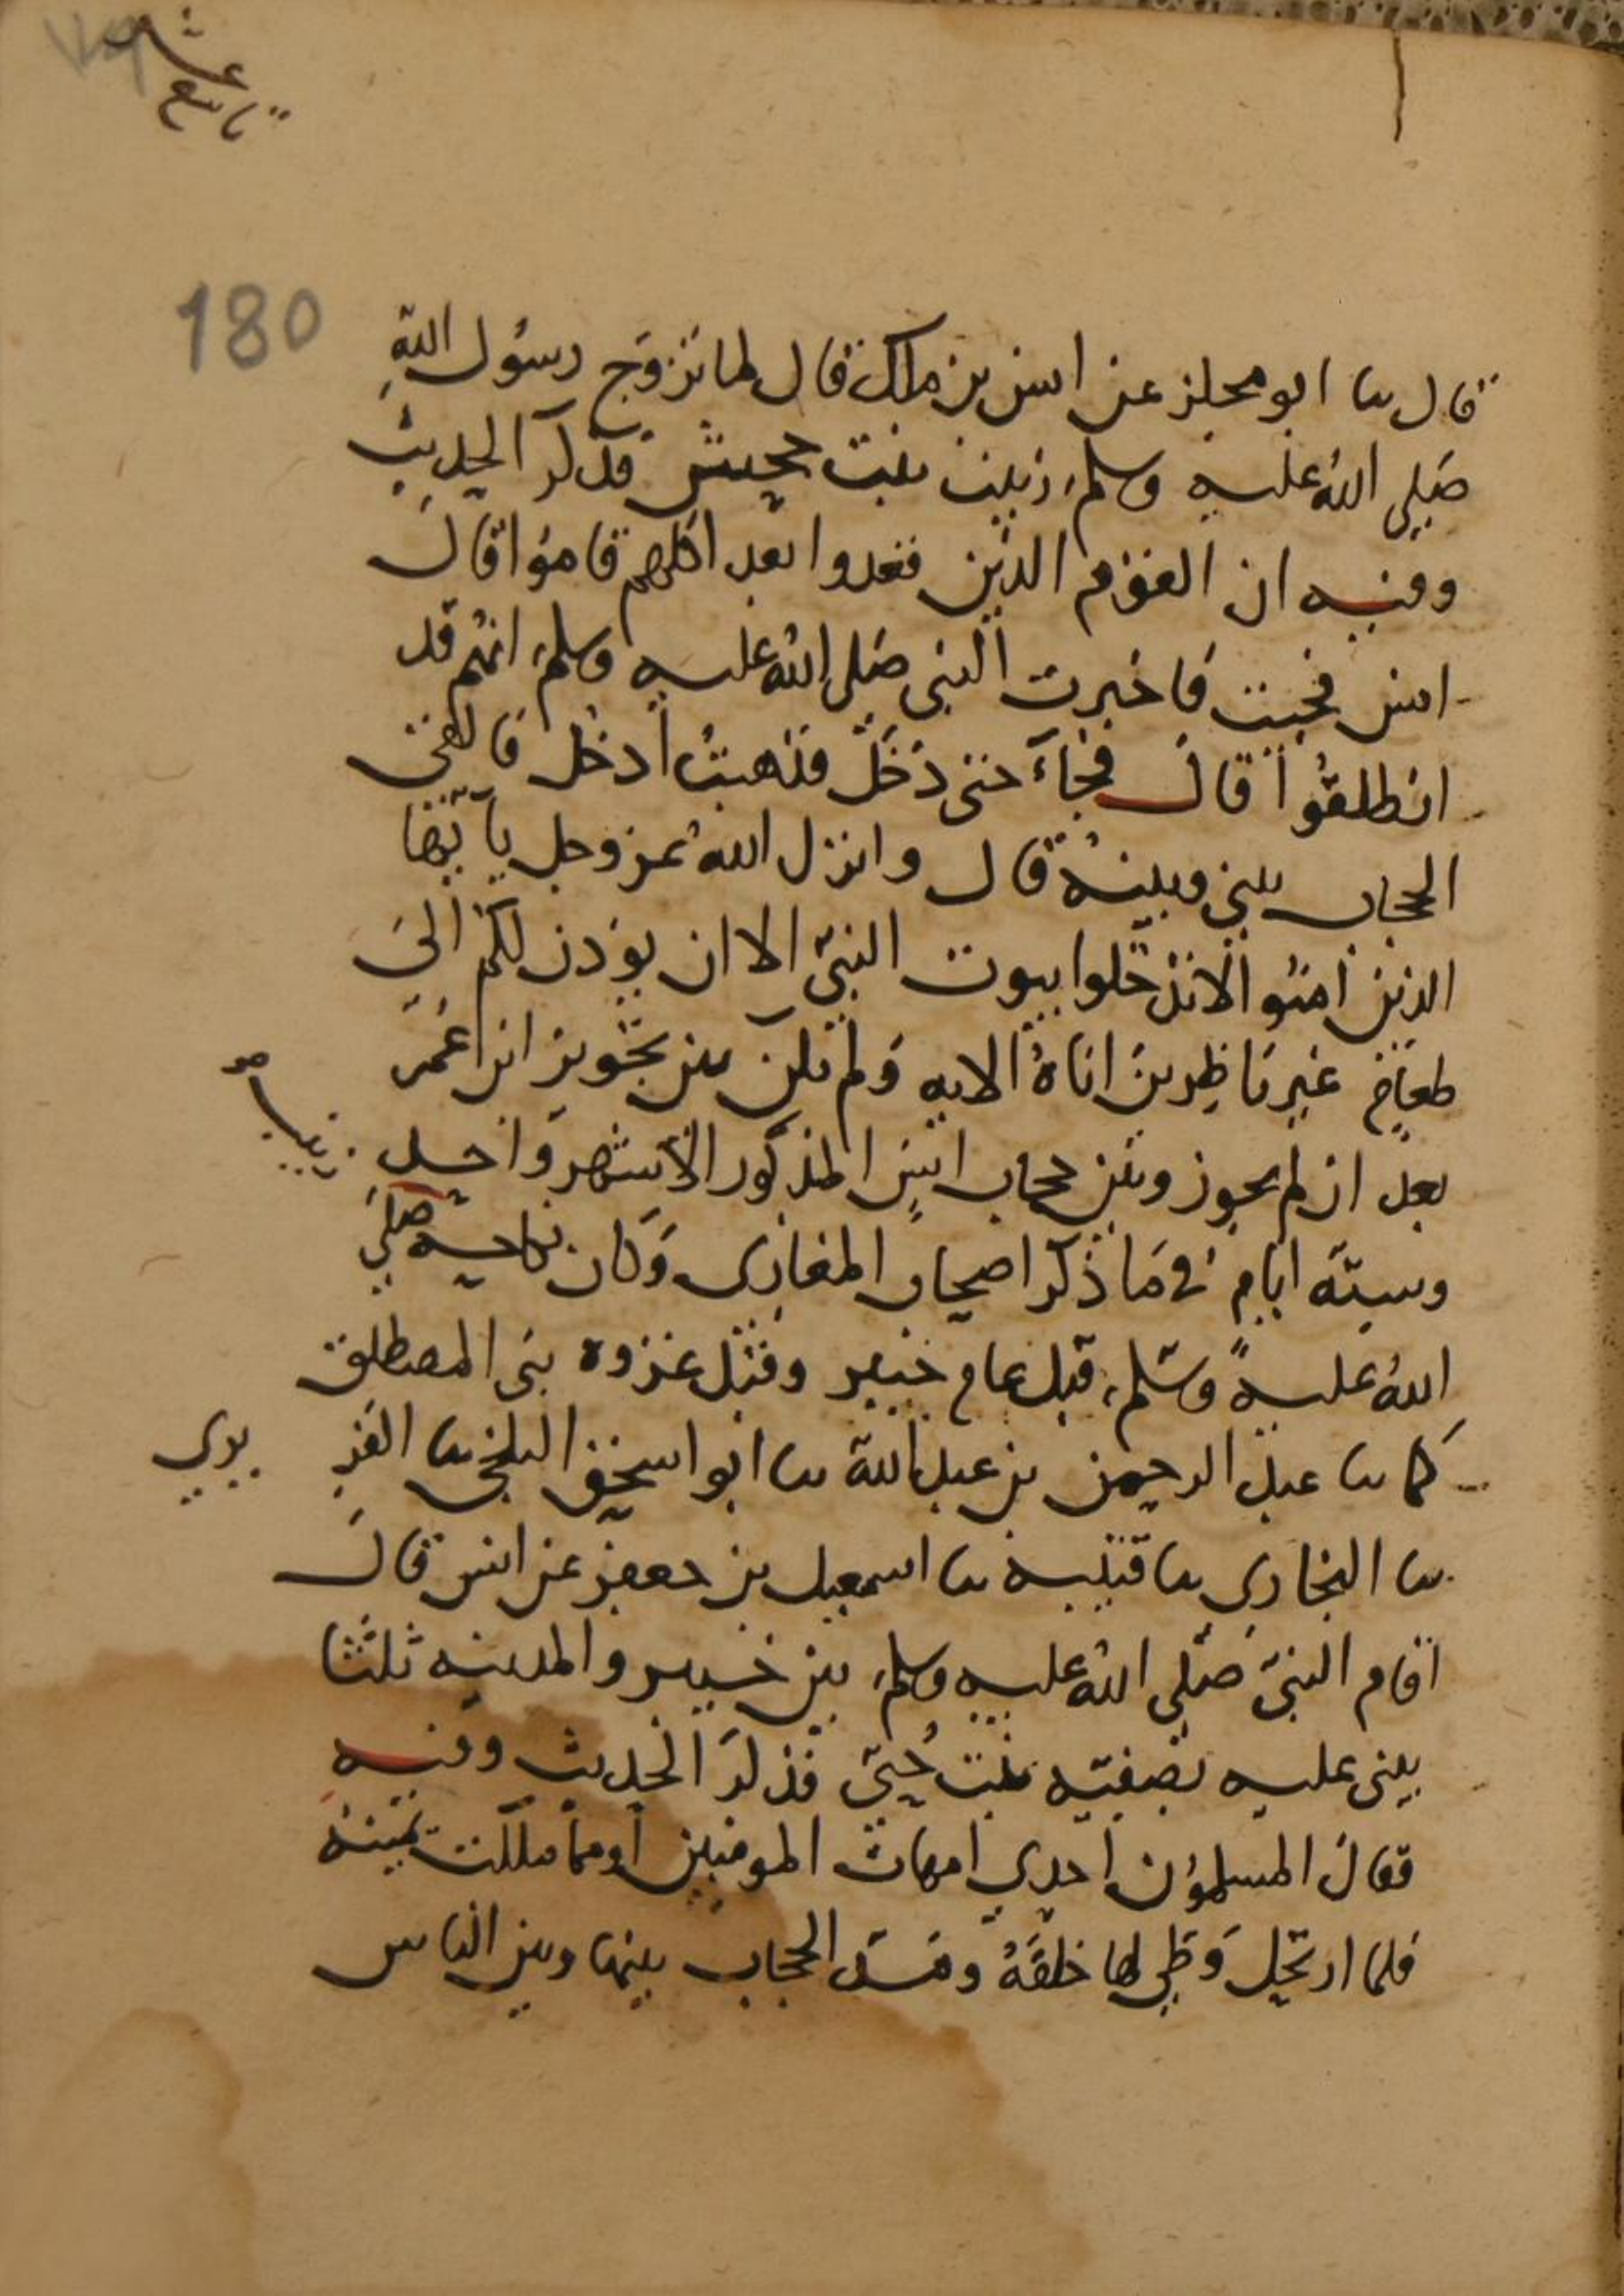 تاسع عشر
180
قال نا ابو مجلز عن انس بن مالك قال لما تزوج رسول الله
صلى الله عليه وسلم زينب بنت جحش فذكر الحديث
وفيه ان القوم الذين قعدوا بعد اكلهم قاموا قال
انس فجيت فاخبرت النبي صلى الله عليه وسلم انهم قد
انطلقوا قال فجاء حتى دخل فذهبت ادخل فالقى
الحجاب بيني وبينه قال وانزل الله عز وجل يا ايها
الذين امنوا لا تدخلوا بيوت النبي الا ان يوذن لكم الى
طعام غير ناظرين اناه الايه ولم يكن بين تجويز ابن عمر
بعد ان لم يجوز وبين حجاب انس المذكور الا شهر واحد
وستة ايام في ما ذكر اصحاب المغازي وكان نكاحه صلى
زينب
الله عليه وسلم قبل عام خيبر وقبل غزوة بني المصطلق
كما نا عبد الرحمن بن عبد الله نا ابو اسحق البلخي نا الفر بري
نا البخاري نا قتيبه نا اسمعيل بن جعفر عن انس قال
اقام النبي صلى الله عليه وسلم بين خيبر والمدينه ثلثا
يبنى عليه بصفيه بنت حيي فذكر الحديث وفيه
فقال المسلمون احدي امهات المومنين او مما ملكت يمينه
فلما ارتحل وطى لها خلفه ومد الحجاب بينها وبين الناس